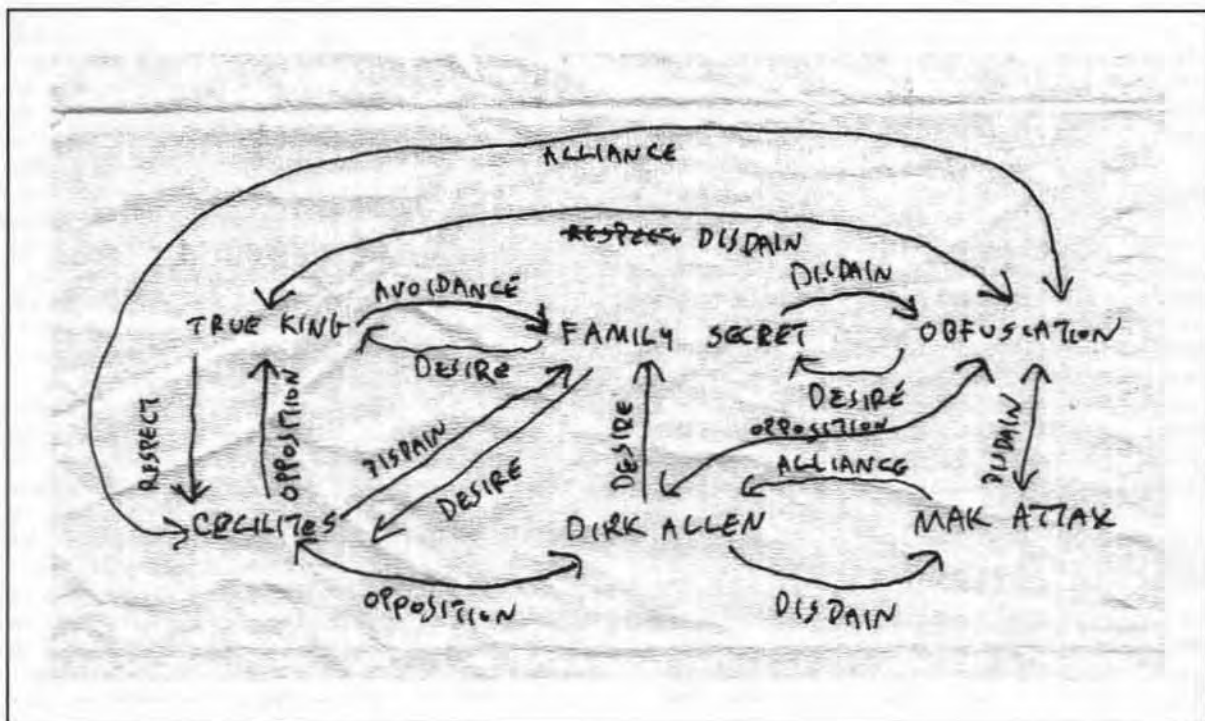 ALLIANCE
RESPECT DISDAIN
DISDAIN
AVOIDANCE
TRUE KING
FAMILY SECRET
OBFUSCATION
DESIRE
DESIRE
OPPOSITION
RESPECT
OPPOSITION
DISDAIN
DESIRE
DESIRE
ALLIANCE
DISDAIN
CECILITES
DIRK ALLEN
MAK ATTAX
OPPOSITION
DISDAIN